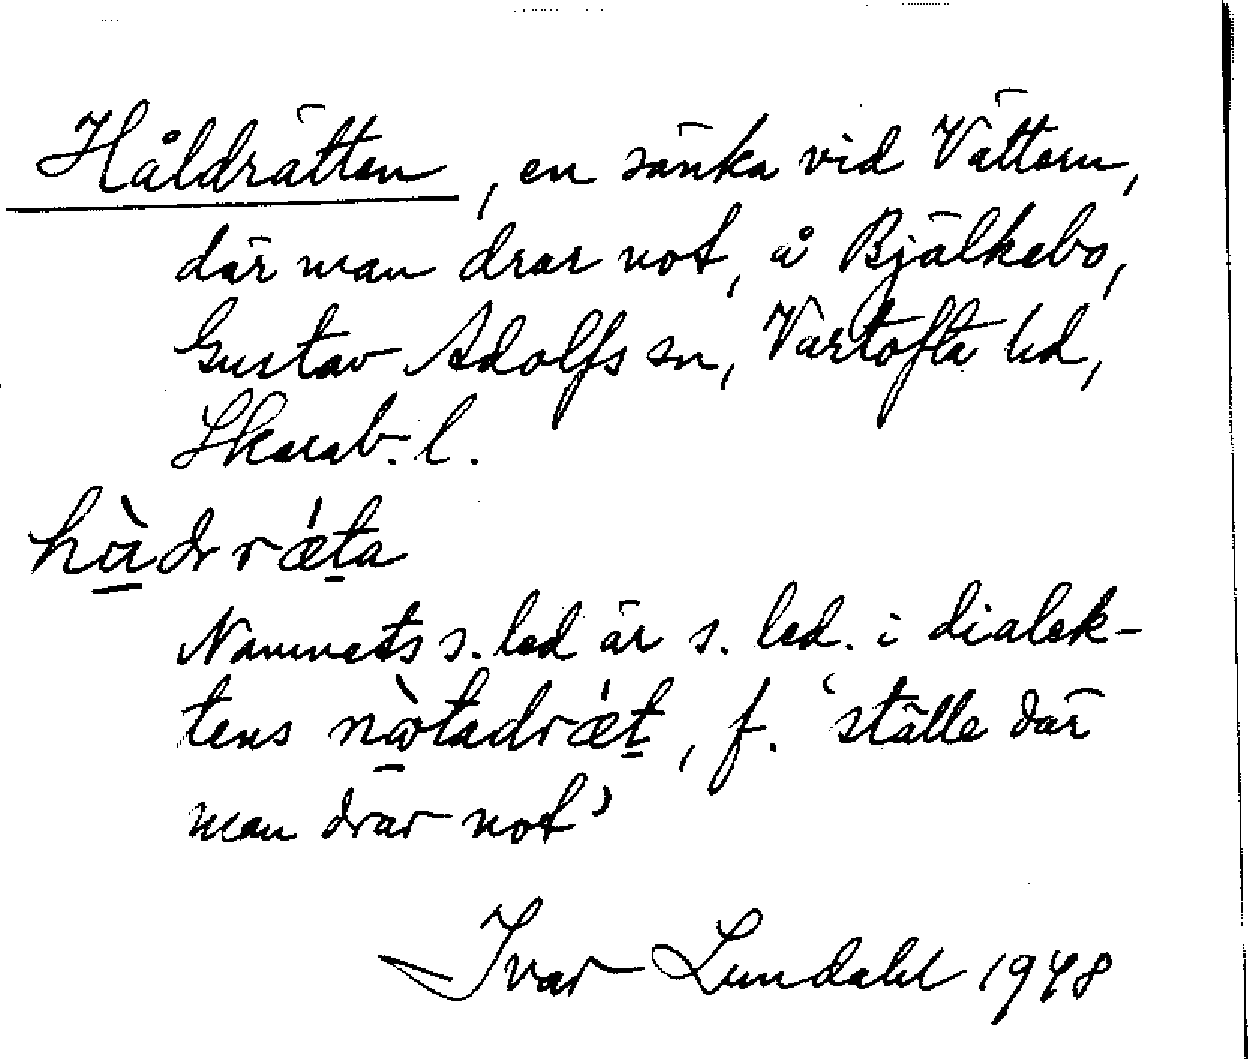 Håldrätten, en sänka vid Vättern,
där man drar not, å Bjälkebo,
Gustav Adolfs sn, Vartofta hd,
Skarab. l.
hàdrǽta
Namnets s. led är s. led. i dialek-
tens nòtadrǽt, f. ‘ställe där
man drar not’
Ivar Lundahl 1948